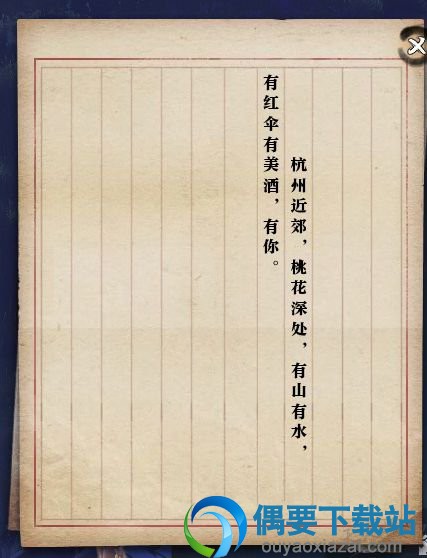 杭州近郊，桃花深处，有山有水，
有红伞有美酒，有你。
偶要下载站
ouyaoxiazai.com